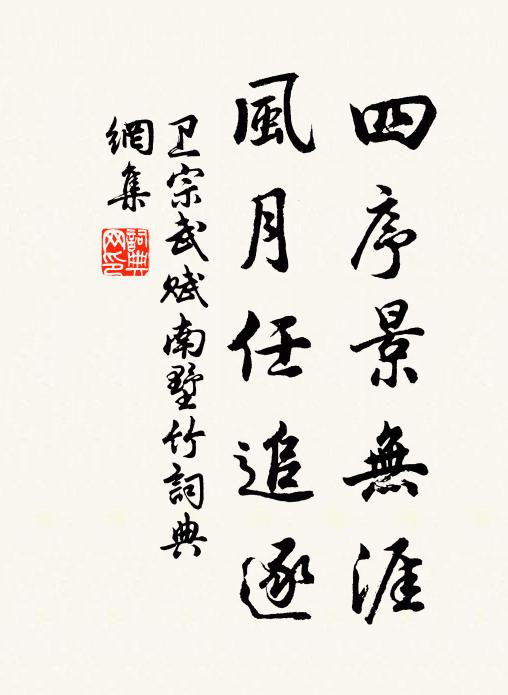 四序景無涯
風月任追逐
卫宗武賦南墅竹詞典
網集
詞典
网印